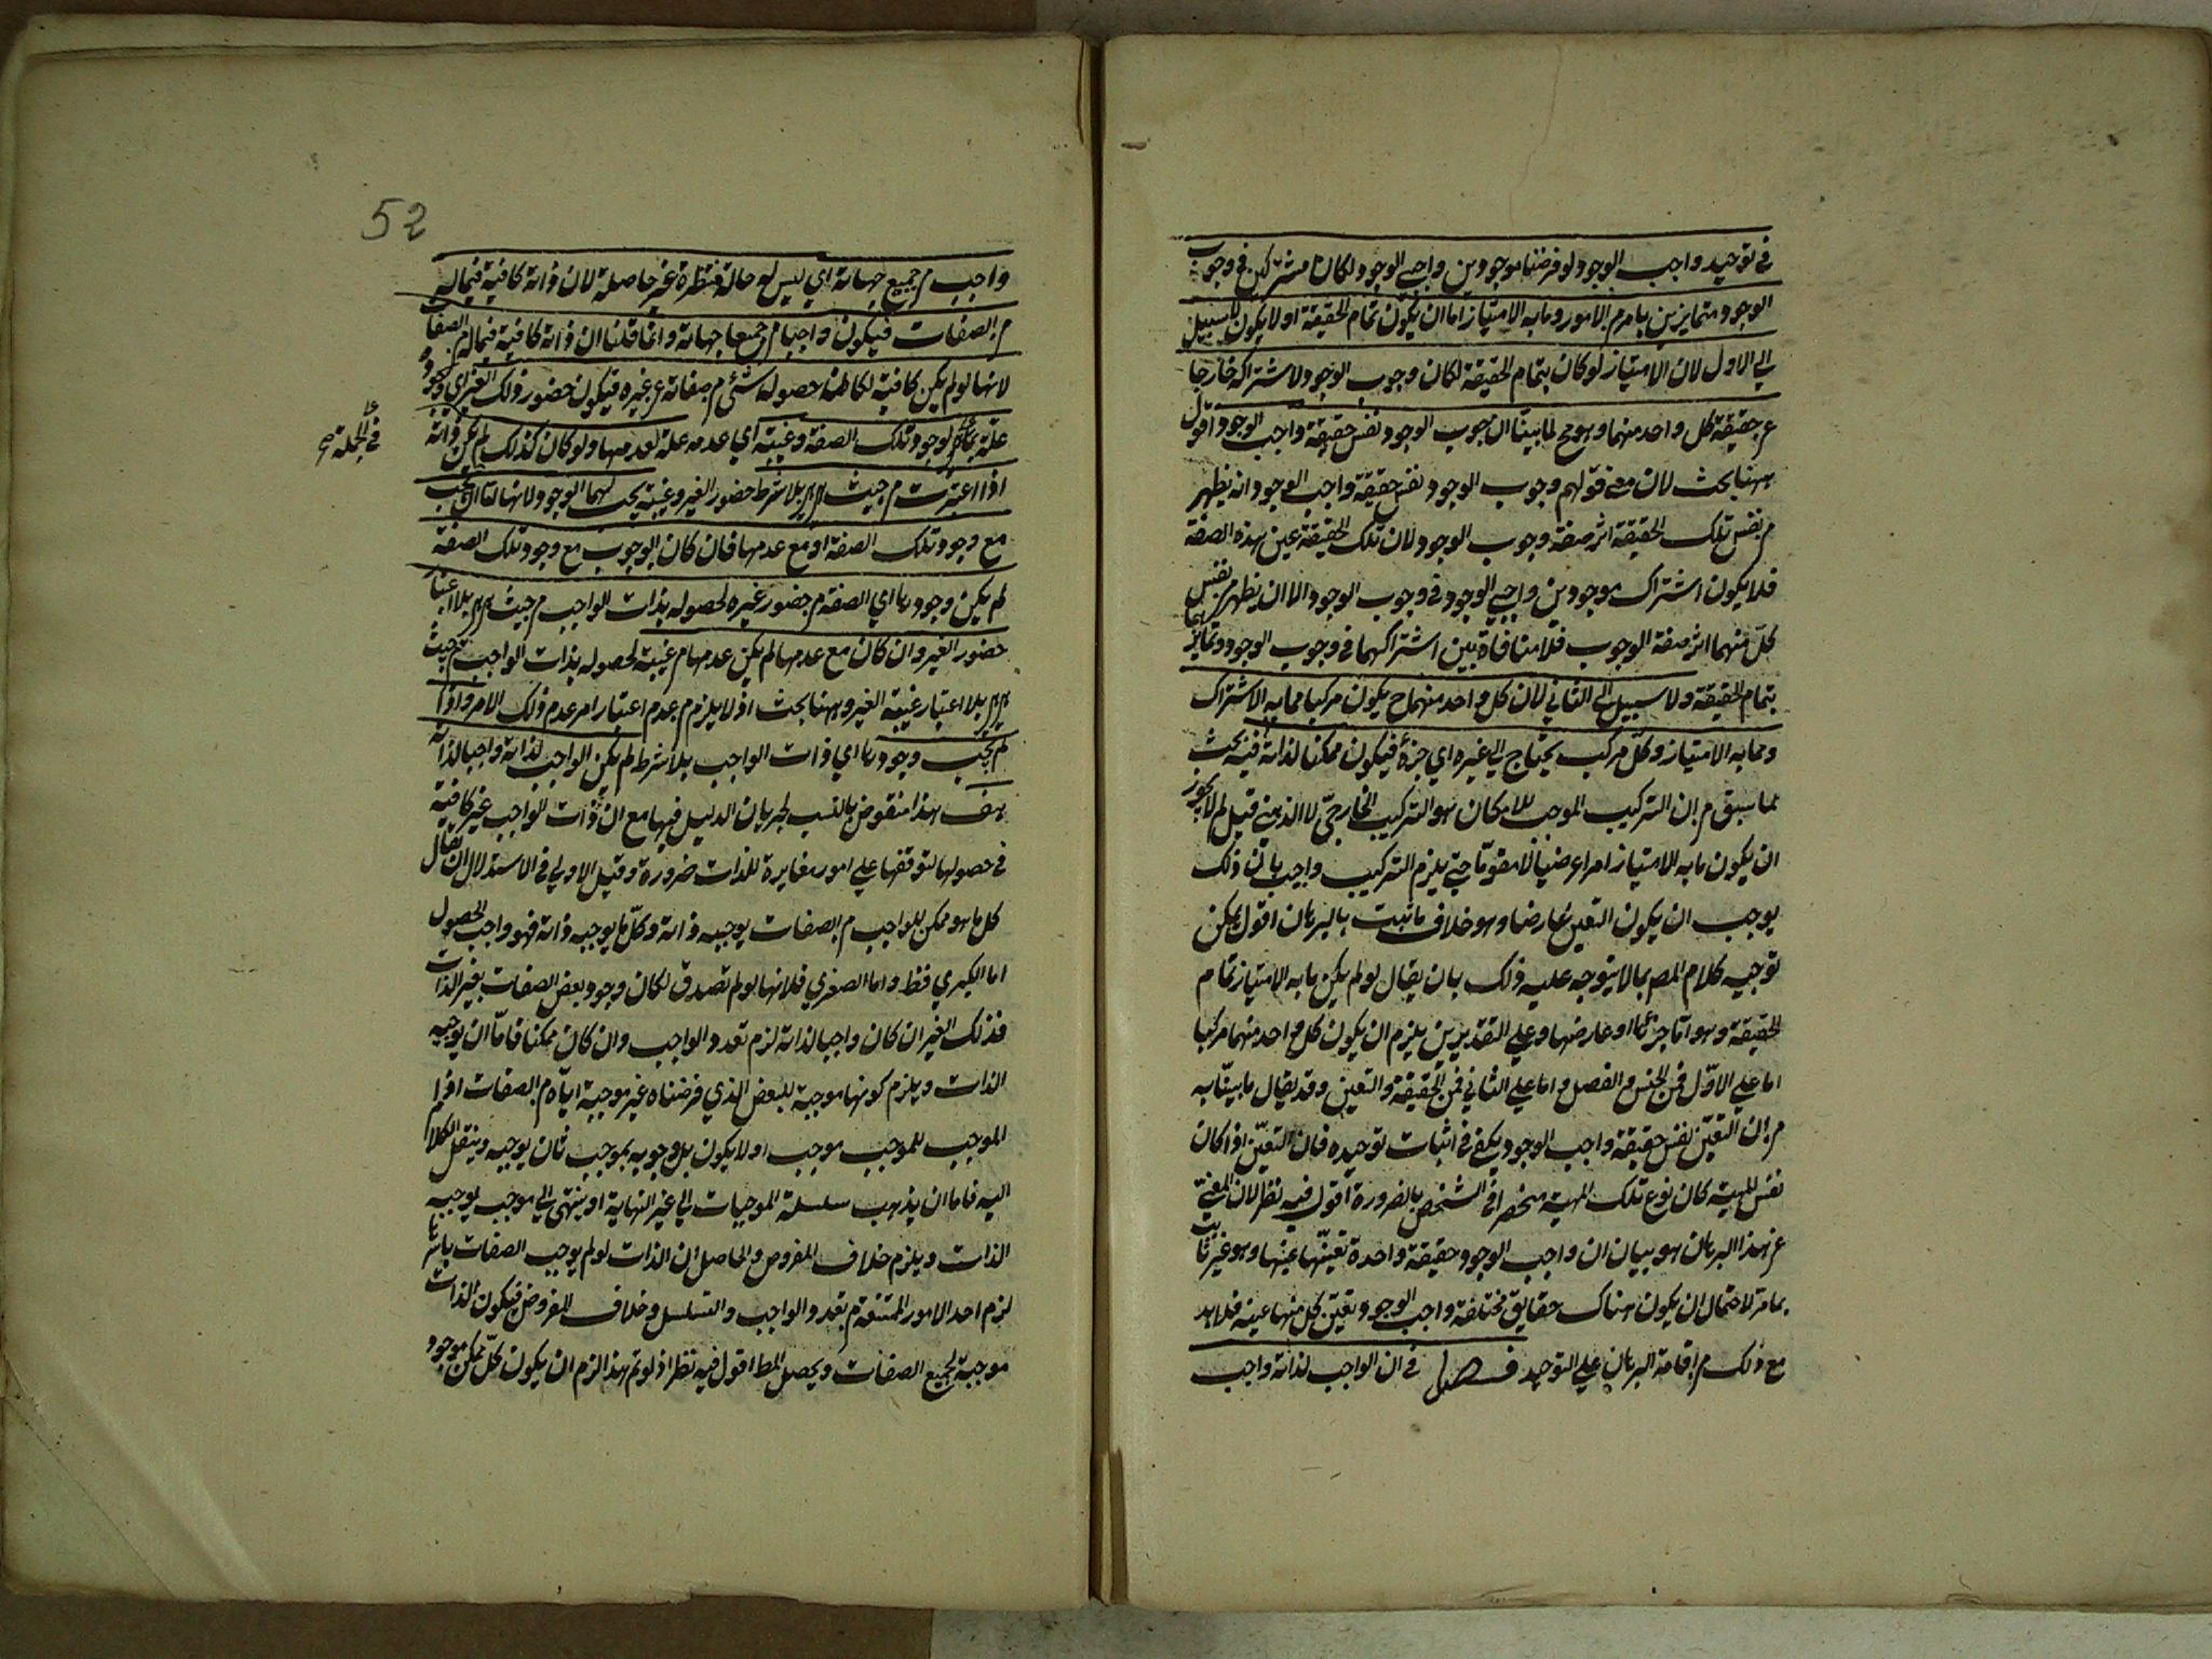 في توحيد واجب الوجود لو فرضنا موجودين واجبي الوجود لكانا مشتركين في وجوب
الوجود متمايزين بامر من الامور وما به الامتياز اما ان يكون تمام الحقيقة او لا يكون لا سبيل
الي الاول لان الامتياز لو كان بتمام الحقيقة لكان وجوب الوجود لاشتراكه خارجا
عن حقيقة كل واحد منهما وهو مح لما بينا ان وجوب الوجود نفس حقيقة واجب الوجود اقول
ههنا بحث لان معني قولهم وجوب الوجود نفس حقيقة واجب الوجود انه يظهر
من نفس تلك الحقيقة اثر صفة وجوب الوجود لا ان تلك الحقيقة عين هذه الصفة
فلا يكون اشتراك موجودين واجبي الوجود في وجوب الوجود الا ان يظهر من نفس
كل منهما اثر صفة الوجوب فلا منافاة بين اشتراكهما في وجوب الوجود وتمايزهما
بتمام الحقيقة ولا سبيل الى الثاني لان كل واحد منهما ح يكون مركبا مما به الاشتراك
ومما به الامتياز وكل مركب يحتاج الي غيره اي جزئه فيكون ممكنا لذاته فيه بحث
لما سبق من ان التركيب الموجب للامكان هو التركيب الخارجي لا الذهني قيل لم لا يجوز
ان يكون ما به الامتياز امرا عرضيا لا مقوما حتي يلزم التركيب واجيب بان ذلك
يوجب ان يكون التعين عارضا وهو خلاف ما ثبت بالبرهان اقول يمكن
توجيه كلام المص بما لا يتوجه عليه ذلك بان يقال لو لم يكن ما به الامتياز تمام
الحقيقة وهو اما جزئها او عارضها وعلي التقديرين يلزم ان يكون كل واحد منهما مركبا
اما علي الاول فمن الجنس والفصل واما علي الثاني فمن الحقيقة والتعين وقد يقال ما بينا به
من ان التعين نفس حقيقة واجب الوجود يكفي في اثبات توحيده فان التعين اذا كان
نفس المهية كان نوع تلك المهية منحصرا في الشخص بالضرورة اقول فيه نظر لان المغني
عن هذا البرهان هو بيان ان واجب الوجود حقيقة واحدة تعينها عينها وهو غير ثابت
بما مر لاحتمال ان يكون هناك حقايق مختلفة واجب الوجود وتعين كل منها عينه فلا بد
مع ذلك من اقامة البرهان علي التوحيد فصل في ان الواجب لذاته واجب
52
واجب من جميع جهاته اي ليس له حالة منتظرة غير حاصلة لان ذاته كافية فيما له
من الصفات فيكون واجبا من جميع جهاته وانما قلنا ان ذاته كافية فيما له من الصفات
لانها لو لم يكن كافية لكان شئ من صفاته عن غيره فيكون حضور ذلك الغير اي وجوده
علة لوجود تلك الصفة وغيبته اي عدمه علة لعدمها ولو كان كذلك لم يكن ذاته
في الجملة صح
اذا اعتبرت من حيث هي هي بلا شرط حضور الغير وغيبته يجب لها الوجود لانها اما ان يجب
مع وجود تلك الصفة او مع عدمها فان كان الوجوب مع وجود تلك الصفة
لم يكن وجودها اي الصفة من حضور غيره لحصوله بذات الواجب من حيث هي هي بلا اعتبار
حضور الغير وان كان مع عدمها لم يكن عدمها من غيبته لحصوله بذات الواجب من حيث
هي هي بلا اعتبار غيبة الغير وههنا بحث اذ لا يلزم من عدم اعتبار امر عدم ذلك الامر واذا
لم يجب وجودها اي ذات الواجب بلا شرط لم يكن الواجب لذاته واجبا لذاته
هف هذا منقوض بالنسب لجريان الدليل فيها مع ان ذات الواجب غير كافية
في حصولها لتوقفها علي امور مغايرة للذات ضرورة وقيل الاولي في الاستدلال ان يقال
كل ما هو ممكن للواجب من الصفات يوجبه ذاته وكل ما يوجبه ذاته فهو واجب الحصول
اما الكبري فظ واما الصغري فلانها لو لم تصدق لكان وجود بعض الصفات بغير الذات
فذلك الغير ان كان واجبا لذاته لزم تعدد الواجب وان كان ممكنا فاما ان يوجبه
الذات ويلزم كونها موجبة للبعض الذي فرضناه غير موجبة اياه من الصفات اذ
الموجب للموجب موجب او لا يكون بل وجوبه بموجب ثان يوجبه وينتقل الكلام
اليه فاما ان يذهب سلسلة الموجبات الي غير النهاية او ينتهي الي موجب يوجبه
الذات ويلزم خلاف المفروض والحاصل ان الذات لو لم يوجب الصفات باسرها
لزم احد الامور الممتنعة من تعدد الواجب والتسلسل وخلاف المفروض فيكون الذات
موجبة لجميع الصفات ويحصل المط اقول فيه نظر اذ لو تم هذا لزم ان يكون كل ممكن موجود